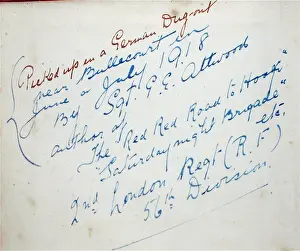 Picked up in a German Dug-out
near Bullecourt in
June or July 1918
By Sgt. G.E. Attwood
author of
"The Red Red Road to Hooge"
"Saturday night Brigade"
etc.
2nd London Regt (R.F.)
56th Division.